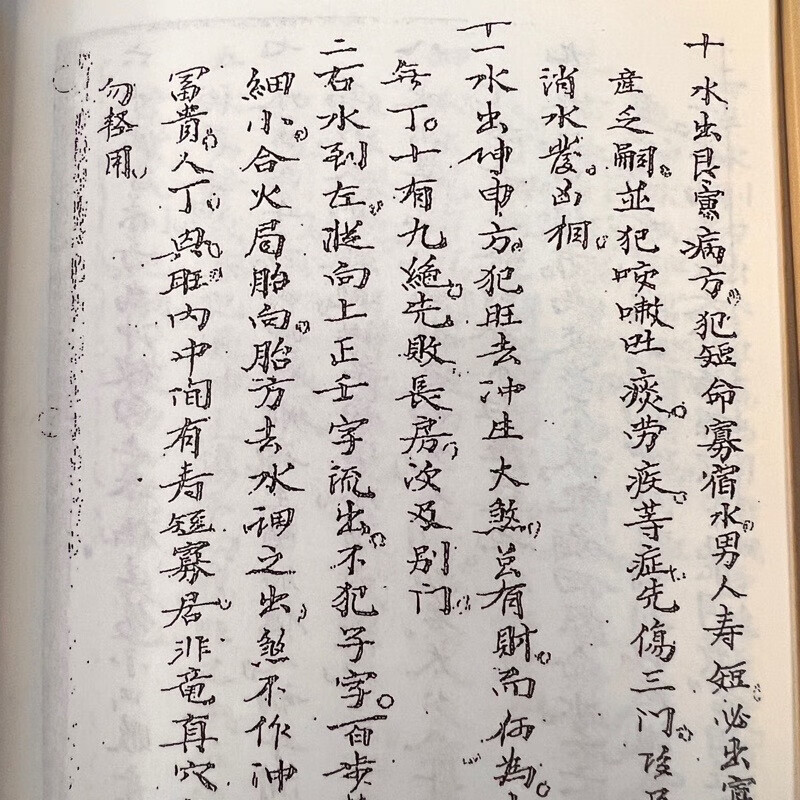 十水出艮寅病方。犯短命寡宿水。男人寿短。必出寡
産乏嗣。並犯咳嗽吐痰劳疾。等症。先傷三门。
消水發凶相。
十一水出坤申方。犯旺去冲生大煞。虽有財。而何為。
無丁。十有九絶。先敗長房。次及别门。
二右水到左。從向上正壬字流出。不犯子字。百步
細小。合火局胎向。胎方去水謂之出煞不作冲
富貴。人丁。興旺。内中间有寿短寡居。非竜真穴
勿軽用。